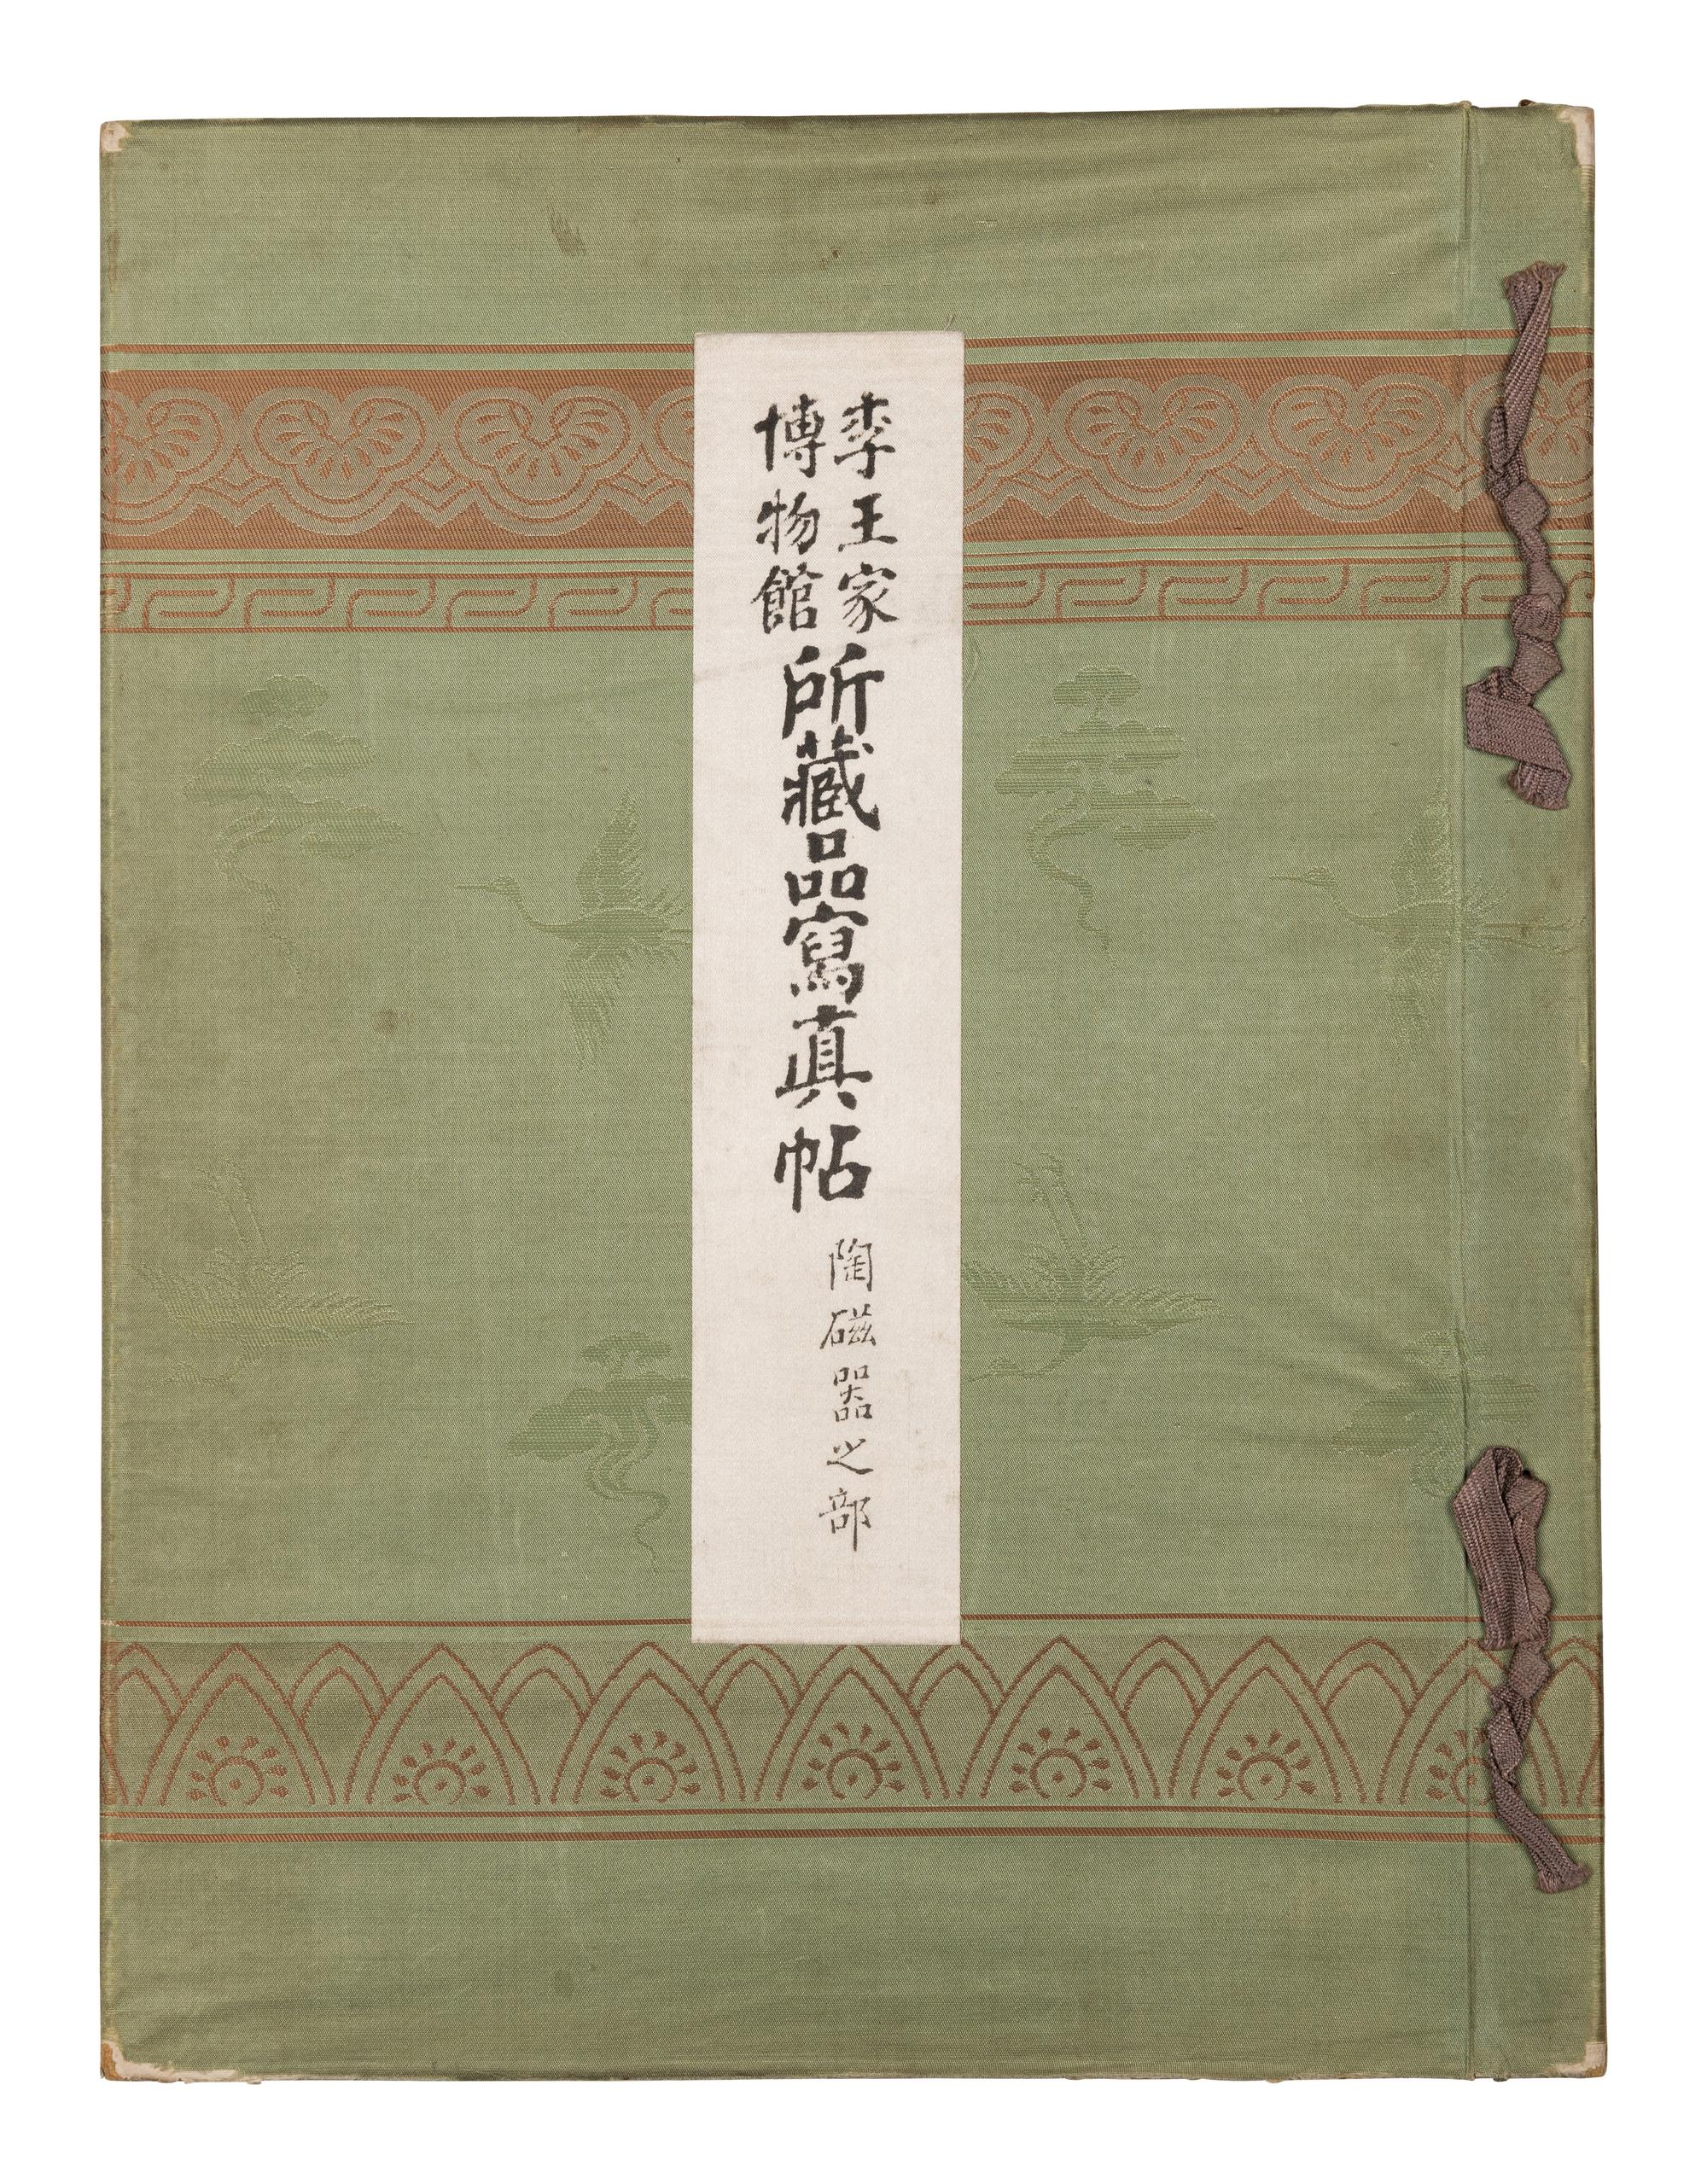 李王家
博物館
所藏品寫眞帖
陶磁器之部